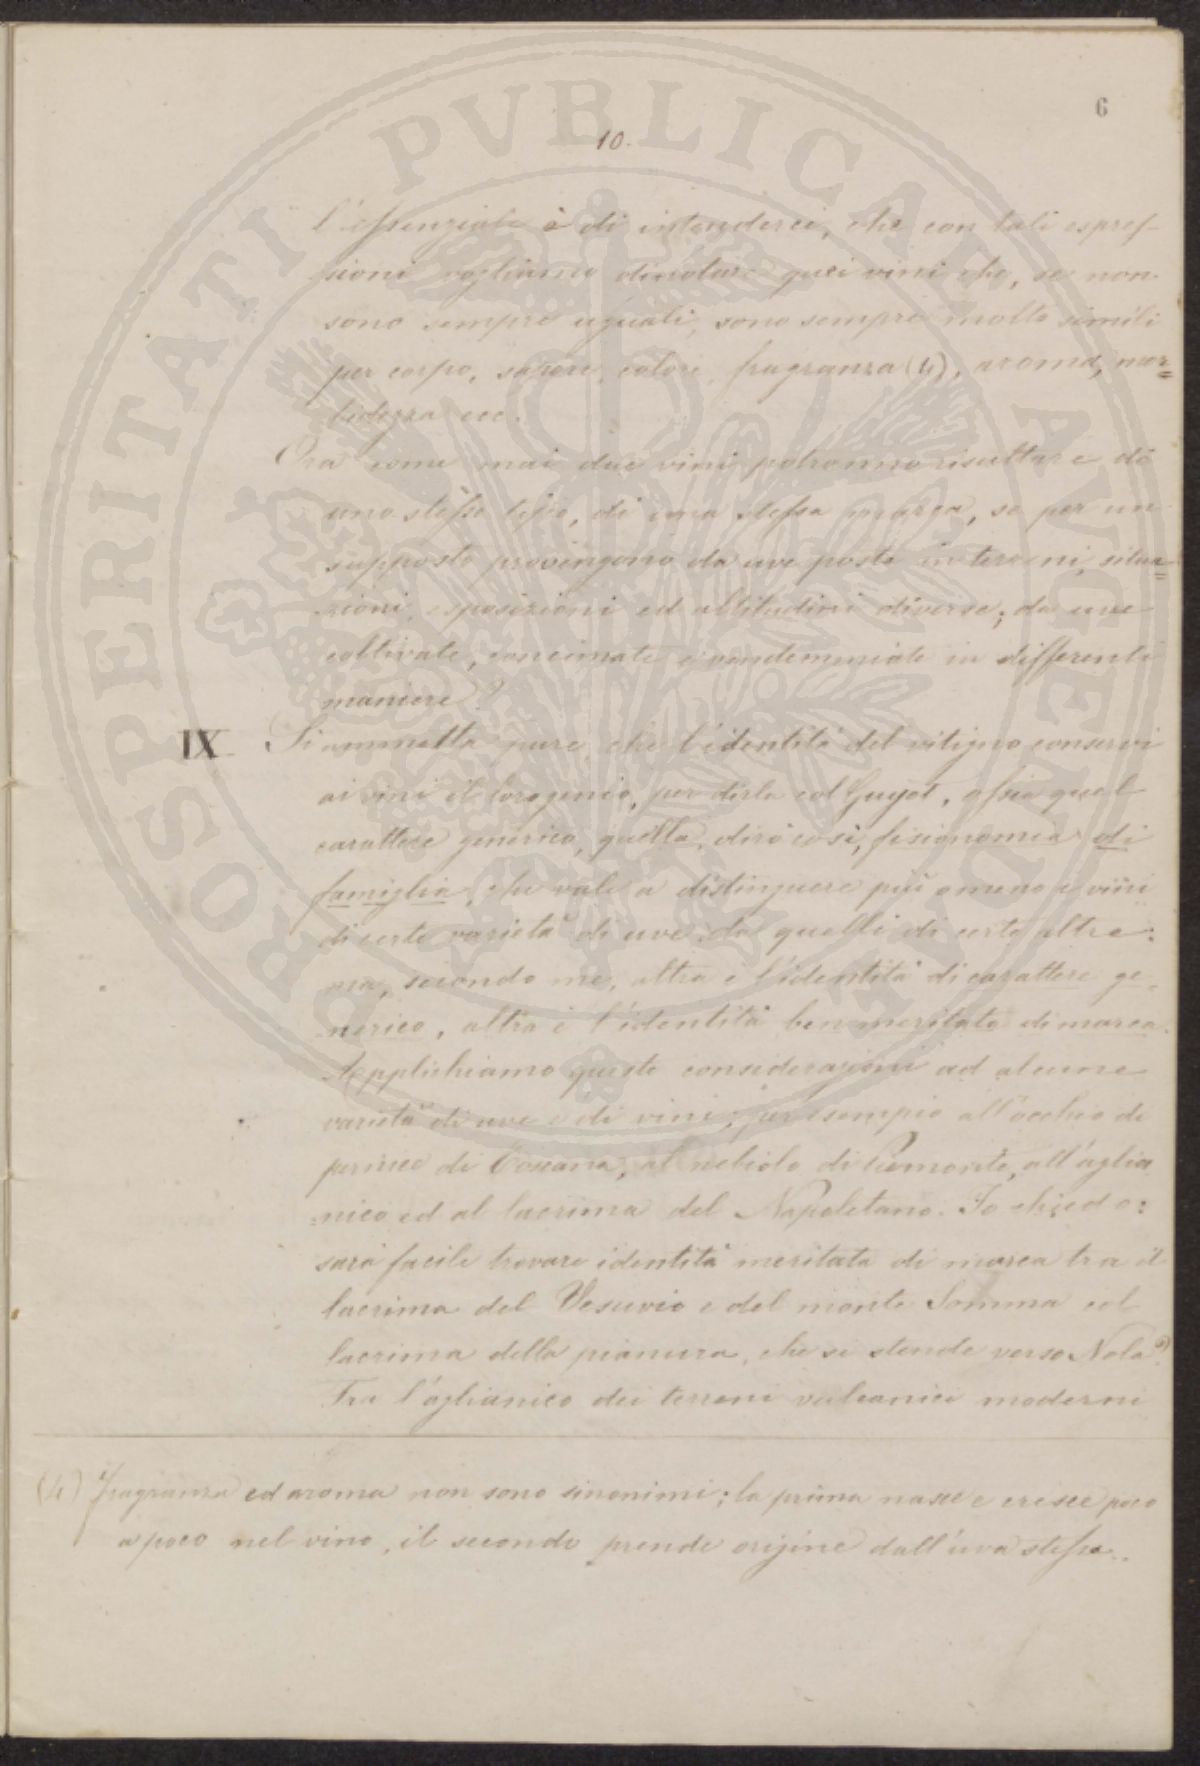 6
10.
l'essenziale è di intenderci, che con tali espres-
sioni vogliamo dinotare quei vini che, se non
sono sempre uguali, sono sempre molto simili
per corpo, sapore, colore, fragranza (4), aroma, mor=
bidezza ecc.
Ora come mai due vini potranno risultare di
uno stesso tipo, di una stessa marca, se per un
supposto provengono da uve poste in terreni, situa=
zioni, esposizioni ed altitudini diverse; da uve
coltivate, concimate e vendemmiate in differenti
maniere?
IX Si ammetta pure che l'identità del vitigno conservi
ai vini il loro genio, per dirla col Guyot, ossia quel
carattere generico, quella, dirò così, fisionomia di
famiglia, che vale a distinguere più o meno i vini
di certe varietà di uve da quelli di certe altre:
ma, secondo me, altra è l'identità di carattere ge-
nerico, altra è l'identità ben meritata di marca.
Applichiamo queste considerazioni ad alcune
varietà di uve e di vini; per esempio all'occhio di
pernice di Toscana, al nebiolo di Piemonte, all'aglia
=nico ed al lacrima del Napoletano. Io chiedo:
sarà facile trovare identità meritata di marca tra il
lacrima del Vesuvio e del monte Somma col
lacrima della pianura, che si stende verso Nola?
Tra l'aglianico dei terreni vulcanici moderni
(4) Fragranza ed aroma non sono sinonimi; la prima nasce e cresce poco
a poco nel vino, il secondo prende origine dall'uva stessa.
PROSPERITATI PVBLICAE AVGENDAE